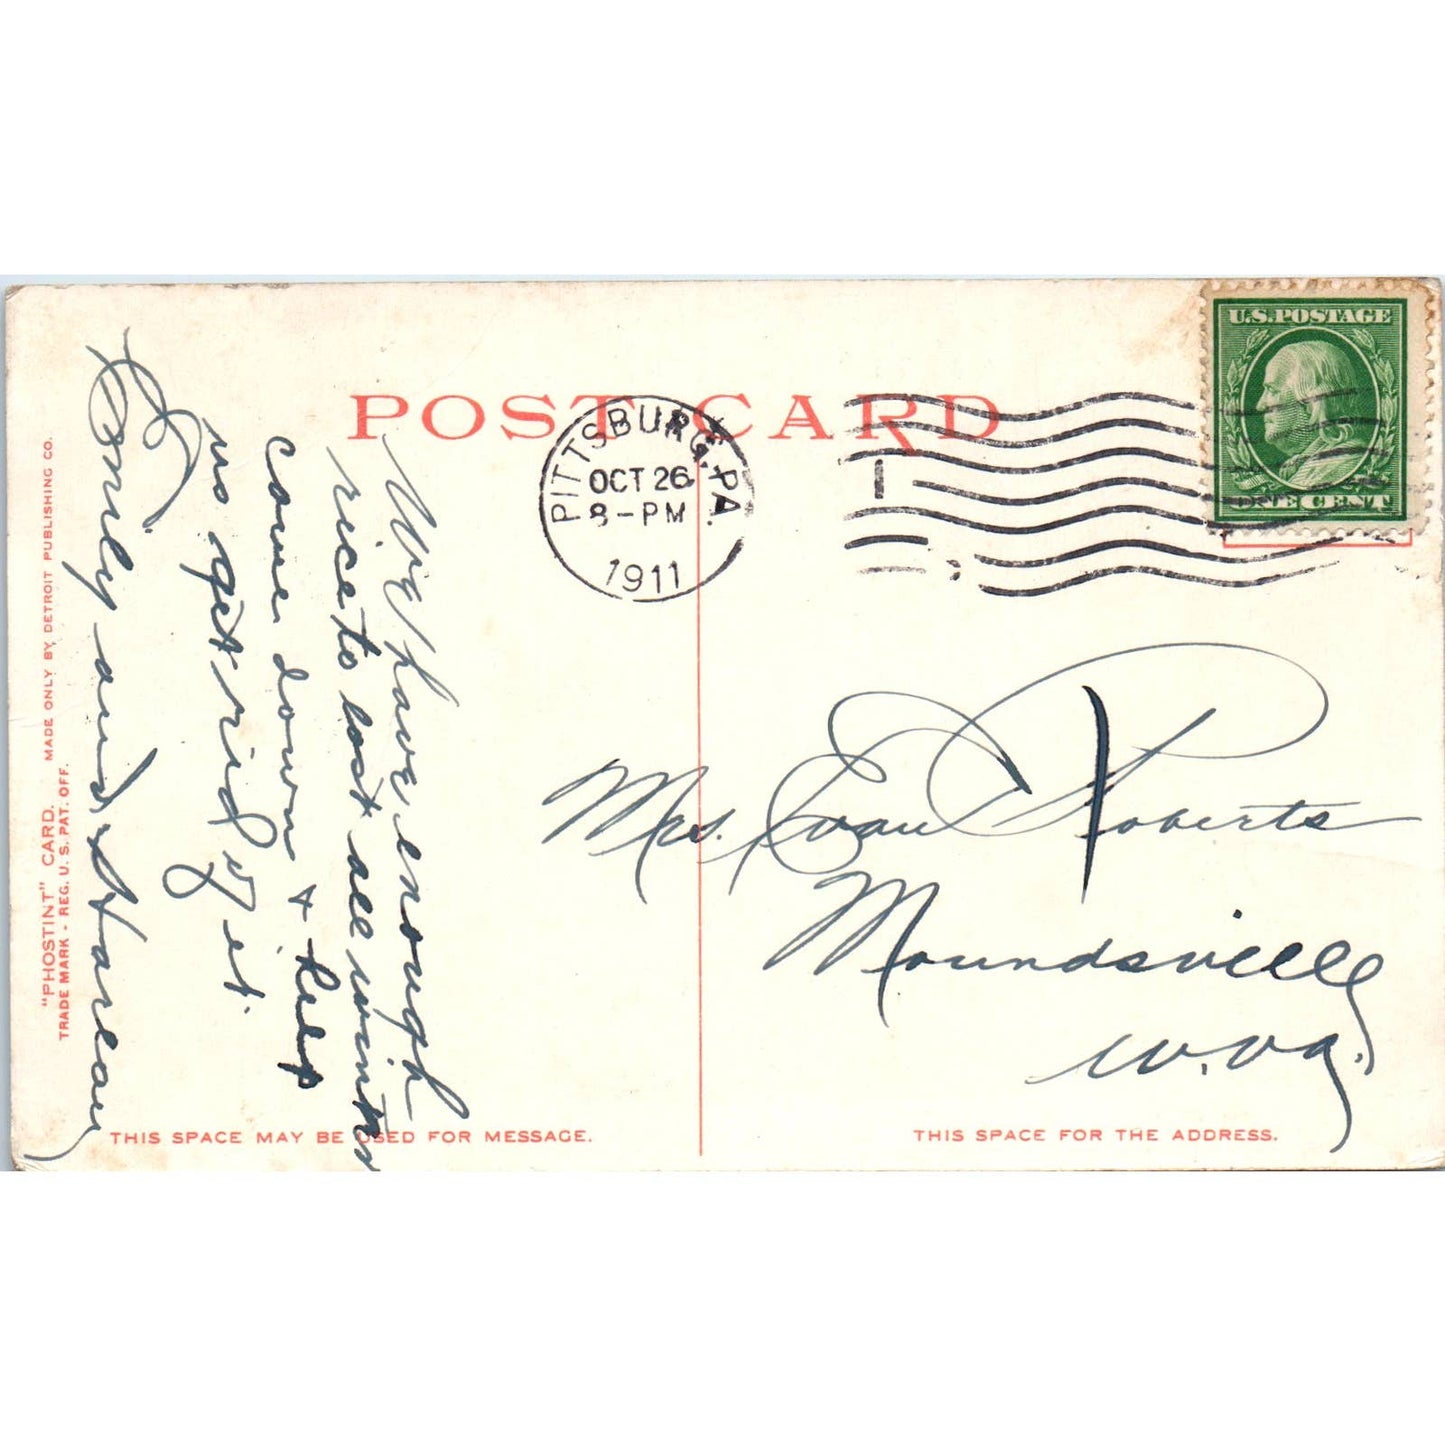 POST CARD
PITTSBURG, PA.
OCT 26
8-PM
1911
1
U.S. POSTAGE
ONE CENT
We have enough
rice to last all winter
come down & help
us get rid of it.
Emily and
Mrs. Evan Roberts
Moundsville
W. Va.
THIS SPACE MAY BE USED FOR MESSAGE.
THIS SPACE FOR THE ADDRESS.
"PHOSTINT" CARD. MADE ONLY BY DETROIT PUBLISHING CO.
TRADE MARK - REG. U. S. PAT. OFF.